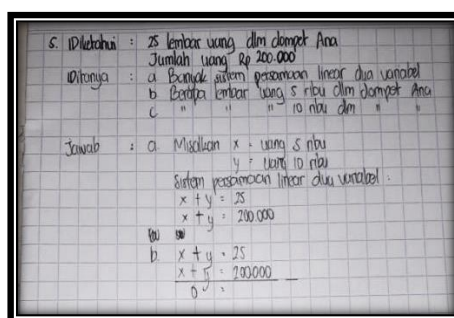 5. Diketahui : 25 lembar uang dlm dompet Ana
Jumlah uang Rp 200.000
Ditanya : a Banyak sistem persamaan linear dua variabel
b Berapa lembar uang 5 ribu dlm dompet Ana
c " " 10 ribu dlm " "
Jawab : a. Misalkan x = uang 5 ribu
y = uang 10 ribu
Sistem persamaan linear dua variabel :
x + y = 25
x + y = 200.000
b. x + y = 25
x + y = 200000 _
0 =